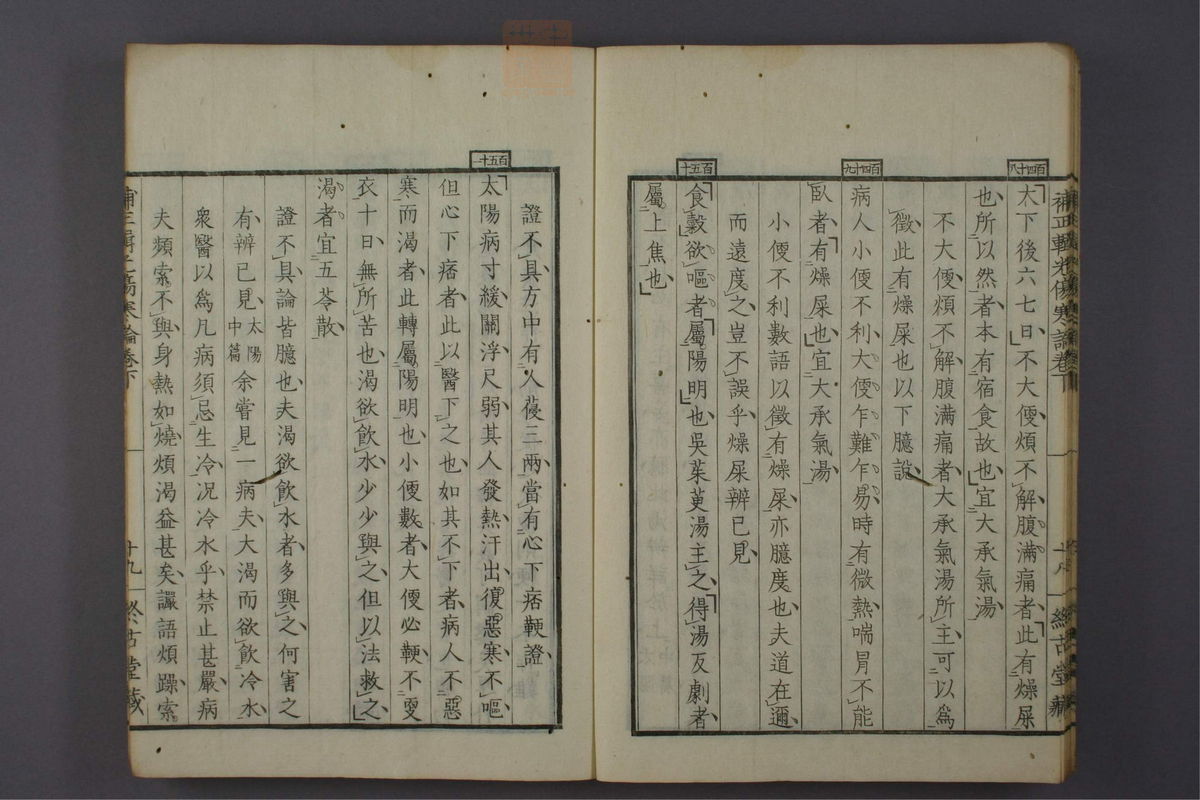 百四十八
大下後六七日不大便煩不解腹滿痛者此有燥屎
也所以然者本有宿食故也宜大承氣湯
不大便煩不解腹滿痛者大承氣湯所主可以爲
徵此有燥屎也以下臆說
百四十九
病人小便不利大便乍難乍易時有微熱喘冒不能
臥者有燥屎也宜大承氣湯
小便不利數語以徵有燥屎亦臆度也夫道在邇
而遠度之豈不誤乎燥屎辨已見
百五十
食穀欲嘔者屬陽明也吳茱萸湯主之得湯反劇者
屬上焦也
證不具方中有人葠三兩當有心下痞鞕證
百五十一
太陽病寸緩關浮尺弱其人發熱汗出復惡寒不嘔
但心下痞者此以醫下之也如其不下者病人不惡
寒而渴者此轉屬陽明也小便數者大便必鞕不更
衣十日無所苦也渴欲飲水少少與之但以法救之
渴者宜五苓散
證不具論皆臆也夫渴欲飲水者多與之何害之
有辨已見太陽中篇余嘗見一病夫大渴而欲飲冷水
衆醫以爲凡病須忌生冷况冷水乎禁止甚嚴病
夫頻索不與身熱如燒煩渴益甚矣讝語煩躁索
十九